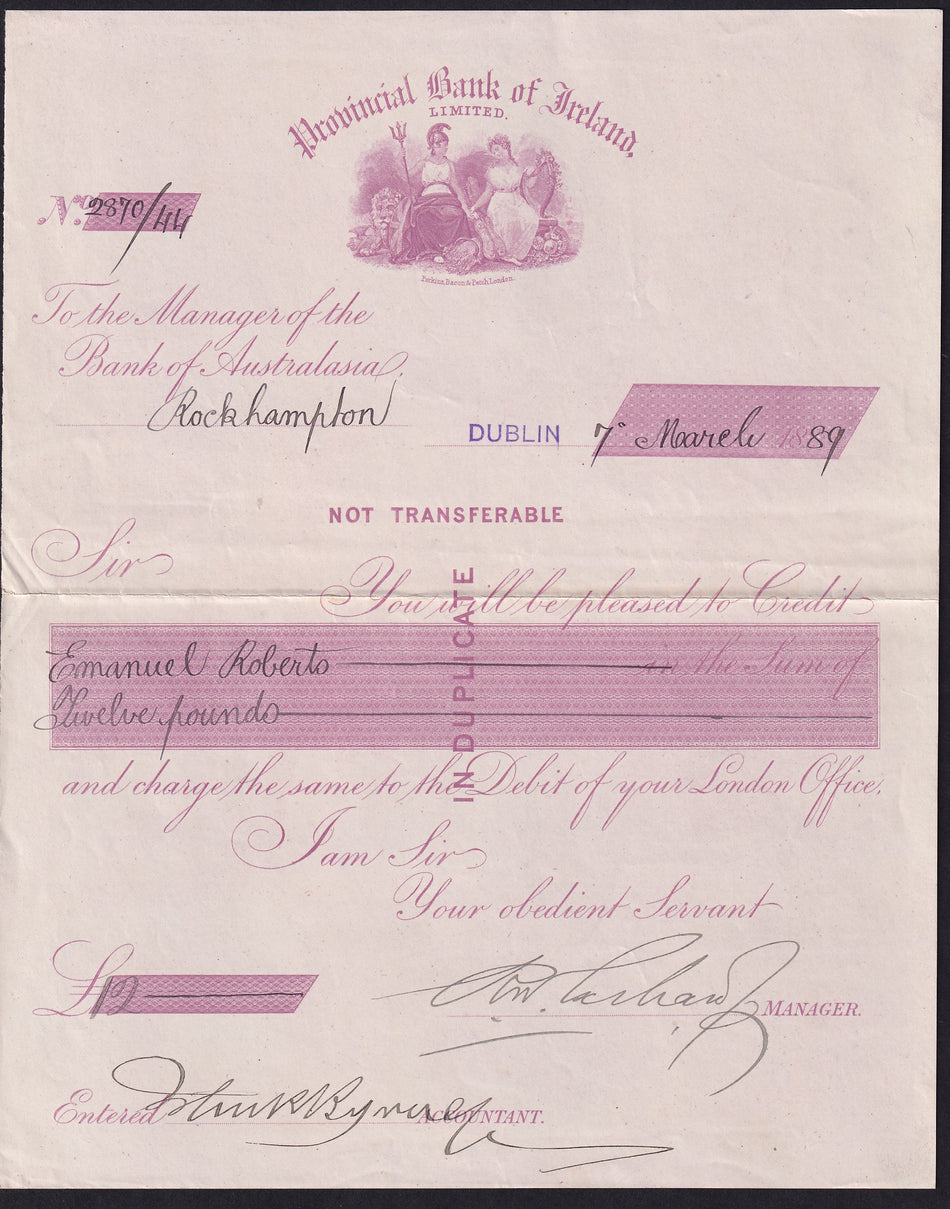 Provincial Bank of Ireland,
LIMITED.
Perkins, Bacon & Petch, London.
No. 2870/44
To the Manager of the
Bank of Australasia,
Rockhampton
DUBLIN 7° March 1889
NOT TRANSFERABLE
Sir
You will be pleased to Credit
Emanuel Roberts in the Sum of
Twelve pounds
IN DUPLICATE
and charge the same to the Debit of your London Office.
I am Sir
Your obedient Servant
£12
MANAGER.
Entered ACCOUNTANT.